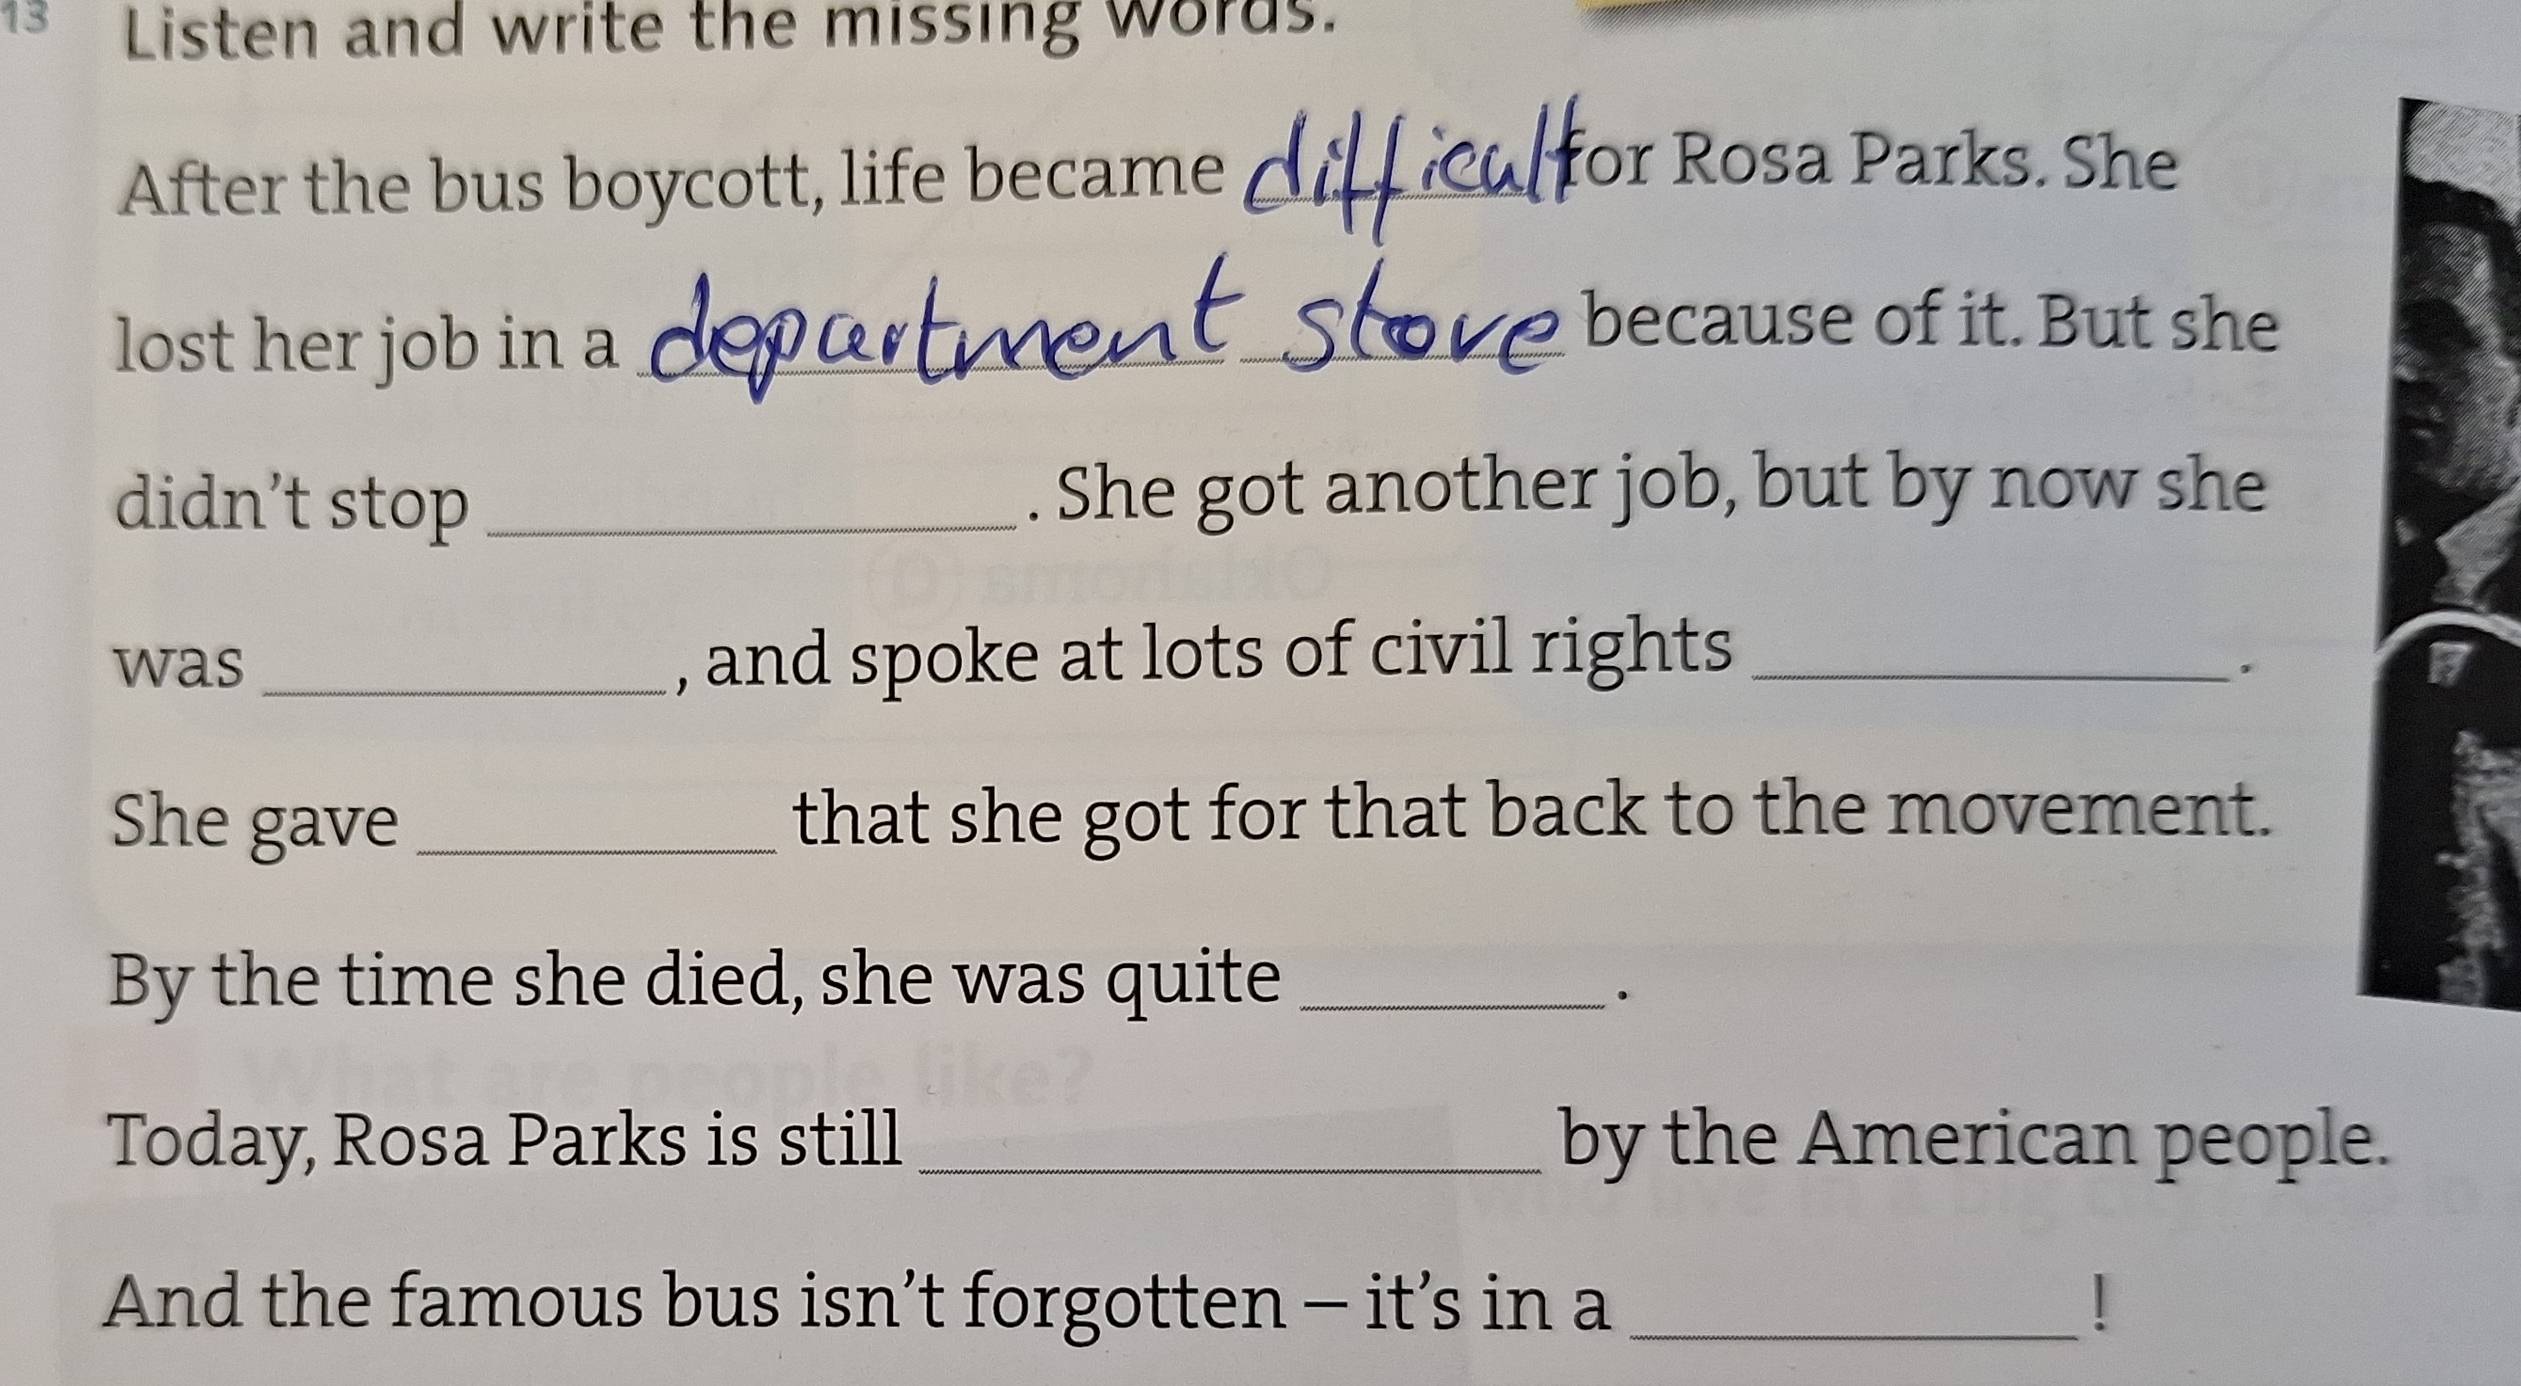 13 Listen and write the missing words.
After the bus boycott, life became difficult for Rosa Parks. She
lost her job in a department store because of it. But she
didn't stop ______. She got another job, but by now she
was ______, and spoke at lots of civil rights ______.
She gave ______ that she got for that back to the movement.
By the time she died, she was quite ______.
What are people like?
Today, Rosa Parks is still ______ by the American people.
And the famous bus isn't forgotten – it's in a ______!